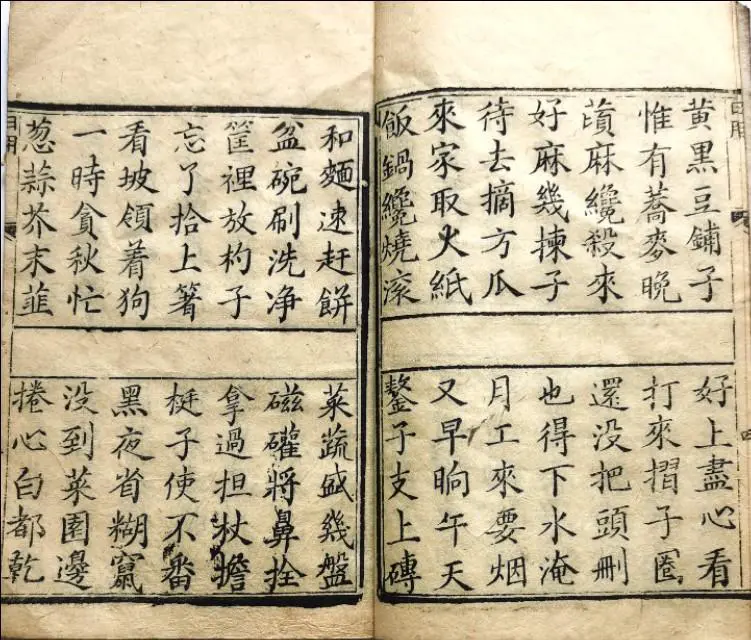 日用
黄黑豆鋪子
好上盡心看
惟有蕎麥晚
打來摺子圈
麻纔殺來
還没把頭刪
好麻幾揀子
也得下水淹
待去摘方瓜
月工來要烟
來家取火紙
又早晌午天
飯鍋纔燒滚
鏊子支上磚
和麵速赶餅
菜蔬盛幾盤
盆碗刷洗净
磁礶將鼻拴
筐裡放杓子
拿過担杖擔
忘了拾上箸
梃子使不番
看坡領着狗
黑夜省糊竄
一時貪秋忙
没到菜園邊
葱蒜芥末韮
捲心白都乾
日用